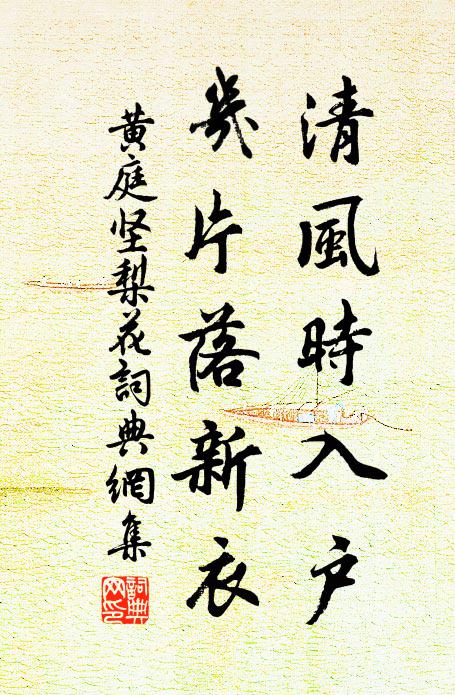 清風時入户
幾片落新衣
黄庭坚梨花詞典網集
詞典
网印